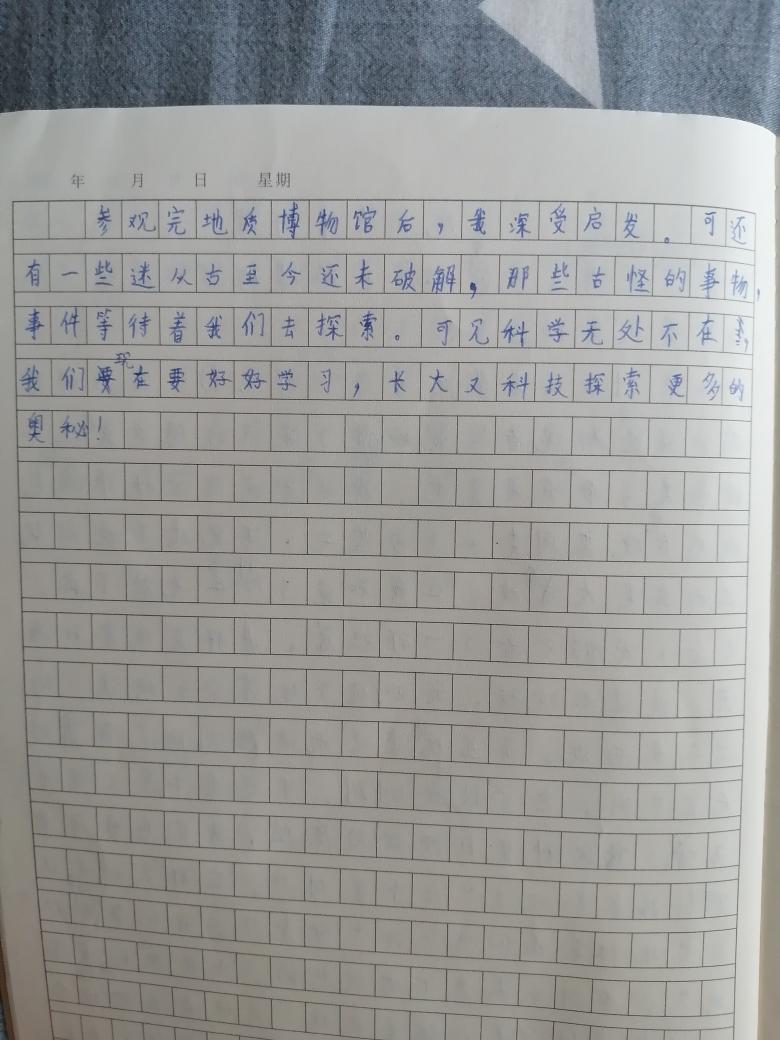 年 月 日 星期
参观完地质博物馆后，我深受启发。可还
有一些迷从古至今还未破解，那些古怪的事物，
事件等待着我们去探索。可见科学无处不在，
我们现在要好好学习，长大又科技探索更多的
奥秘！